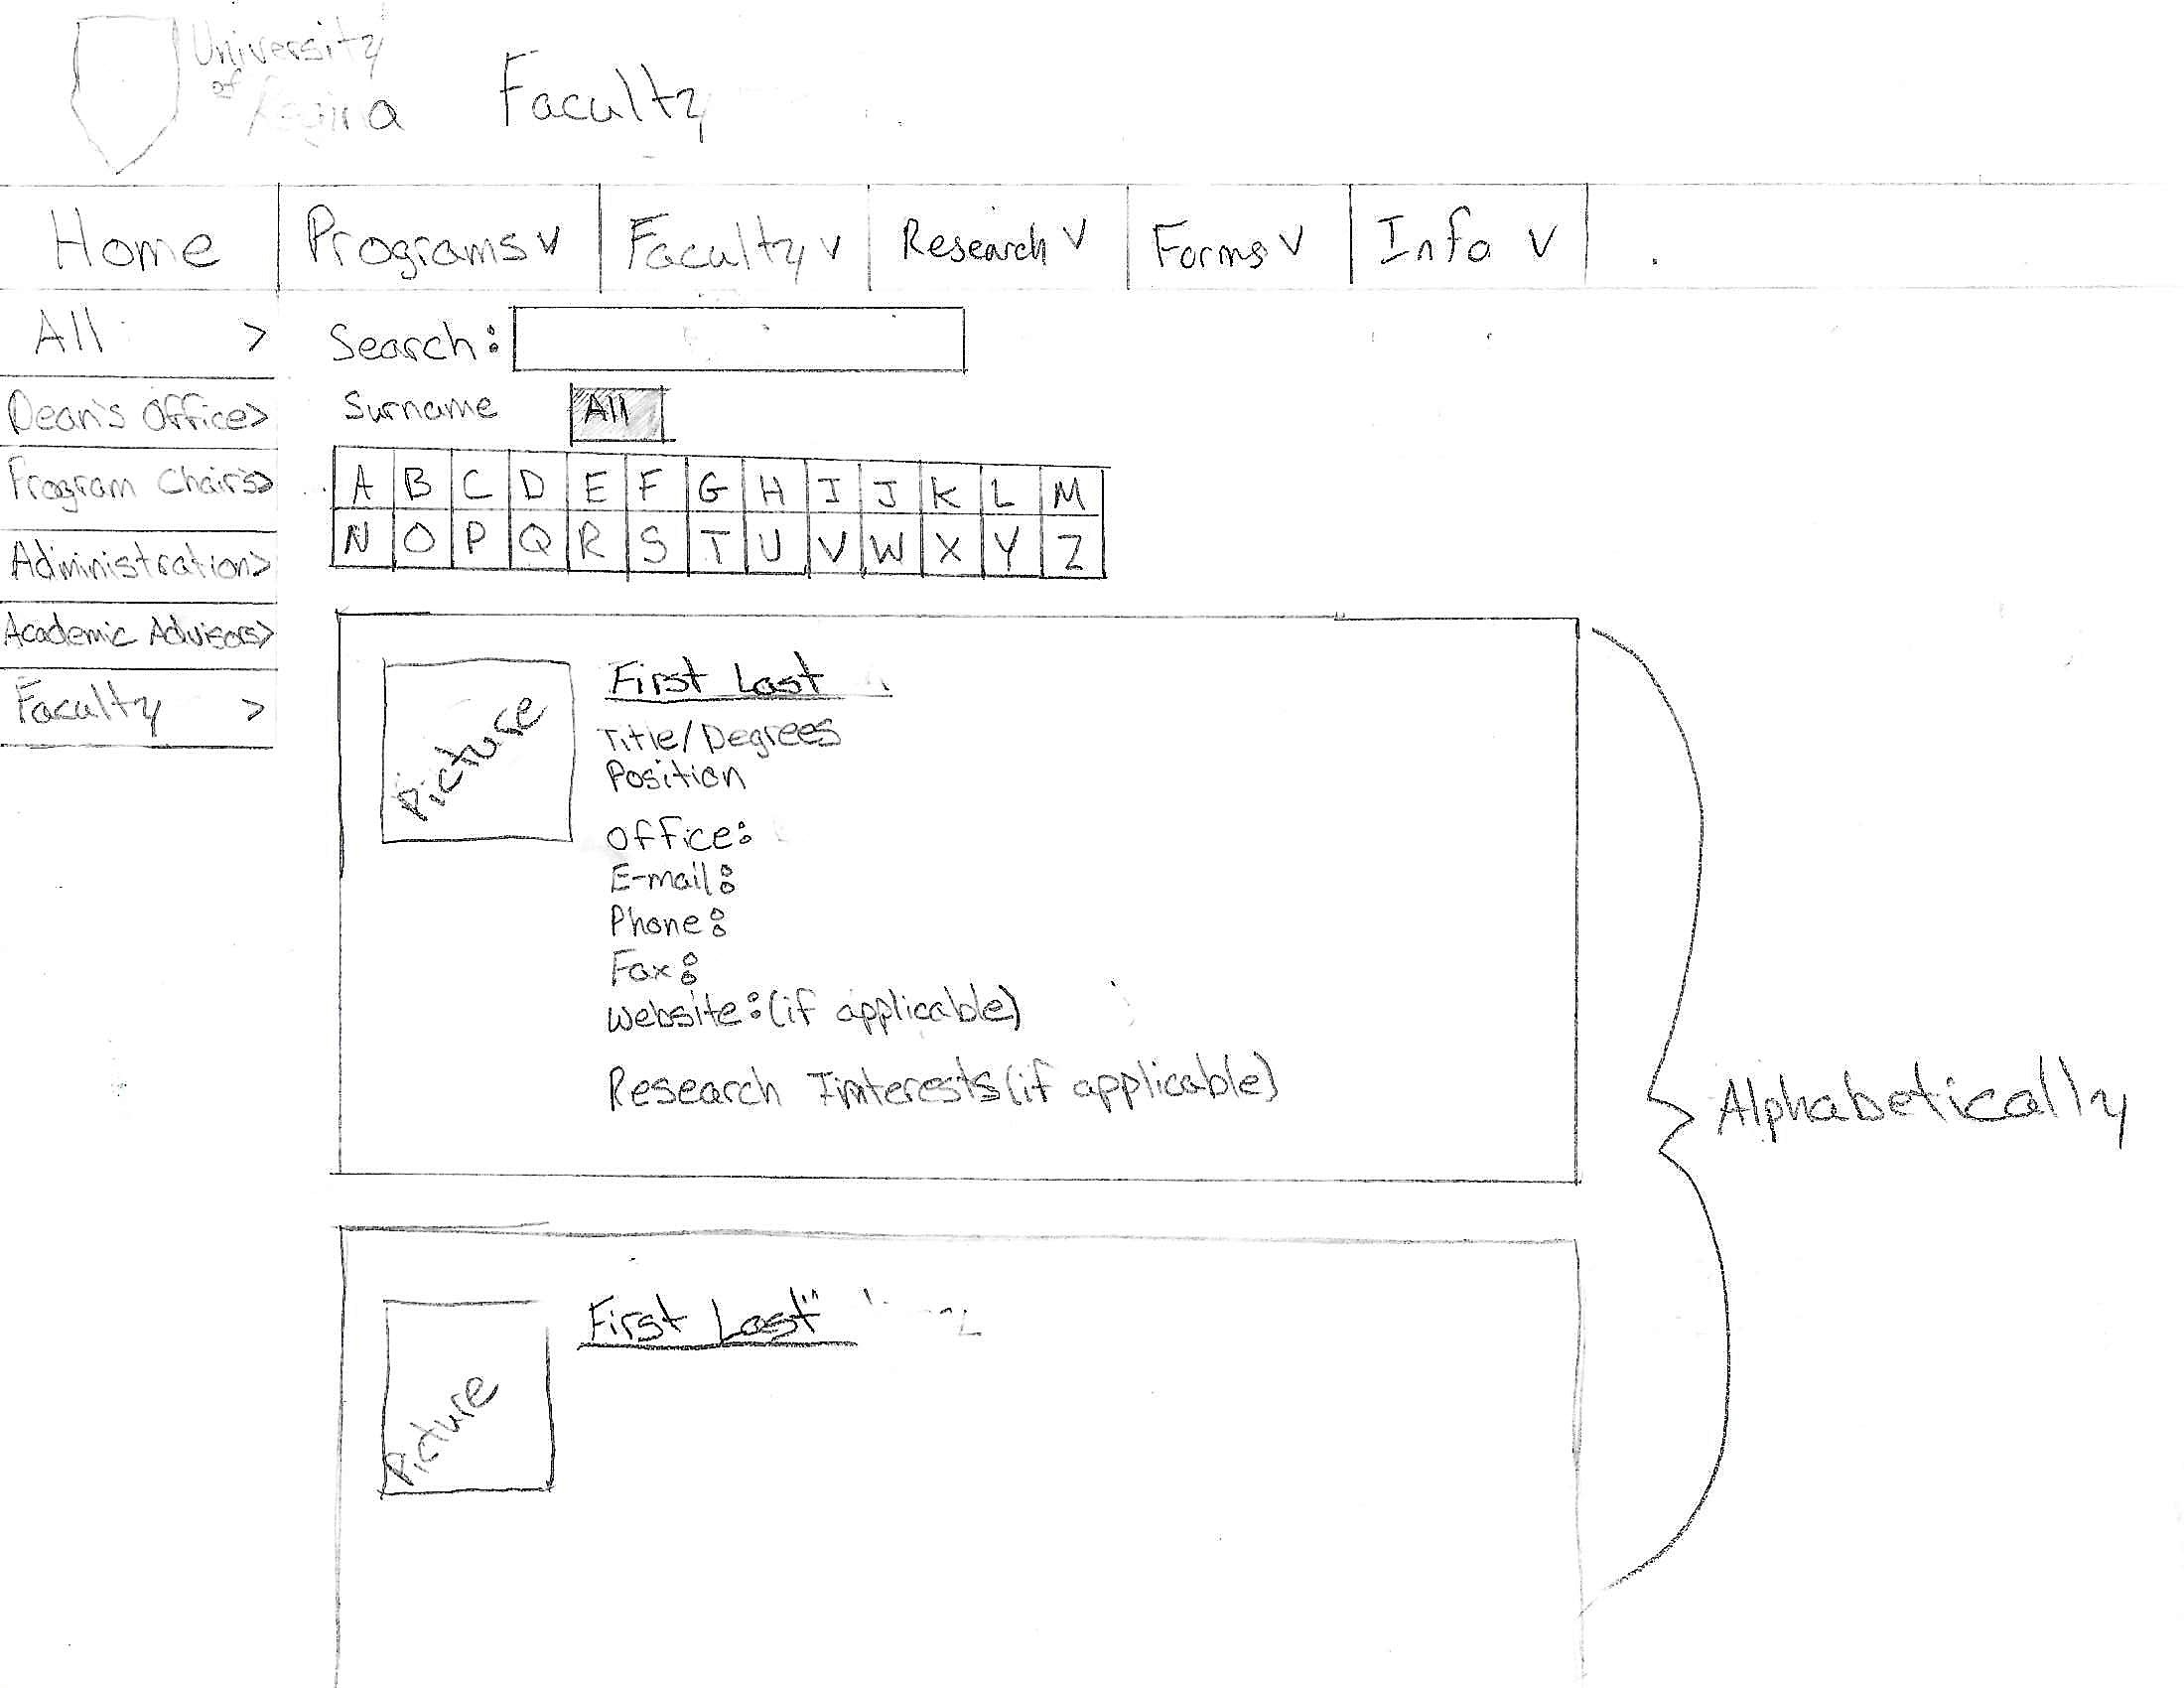 University
of
Regina
Faculty
Home Programs v Faculty v Research v Forms v Info v
All >
Dean's Office >
Program Chairs >
Administration >
Academic Advisors >
Faculty >
Search:
Surname All
A B C D E F G H I J K L M
N O P Q R S T U V W X Y Z
Picture
First Last
Title/Degrees
Position
Office:
E-mail:
Phone:
Fax:
Website: (if applicable)
Research Imterests (if applicable)
Alphabetically
Picture
First Last